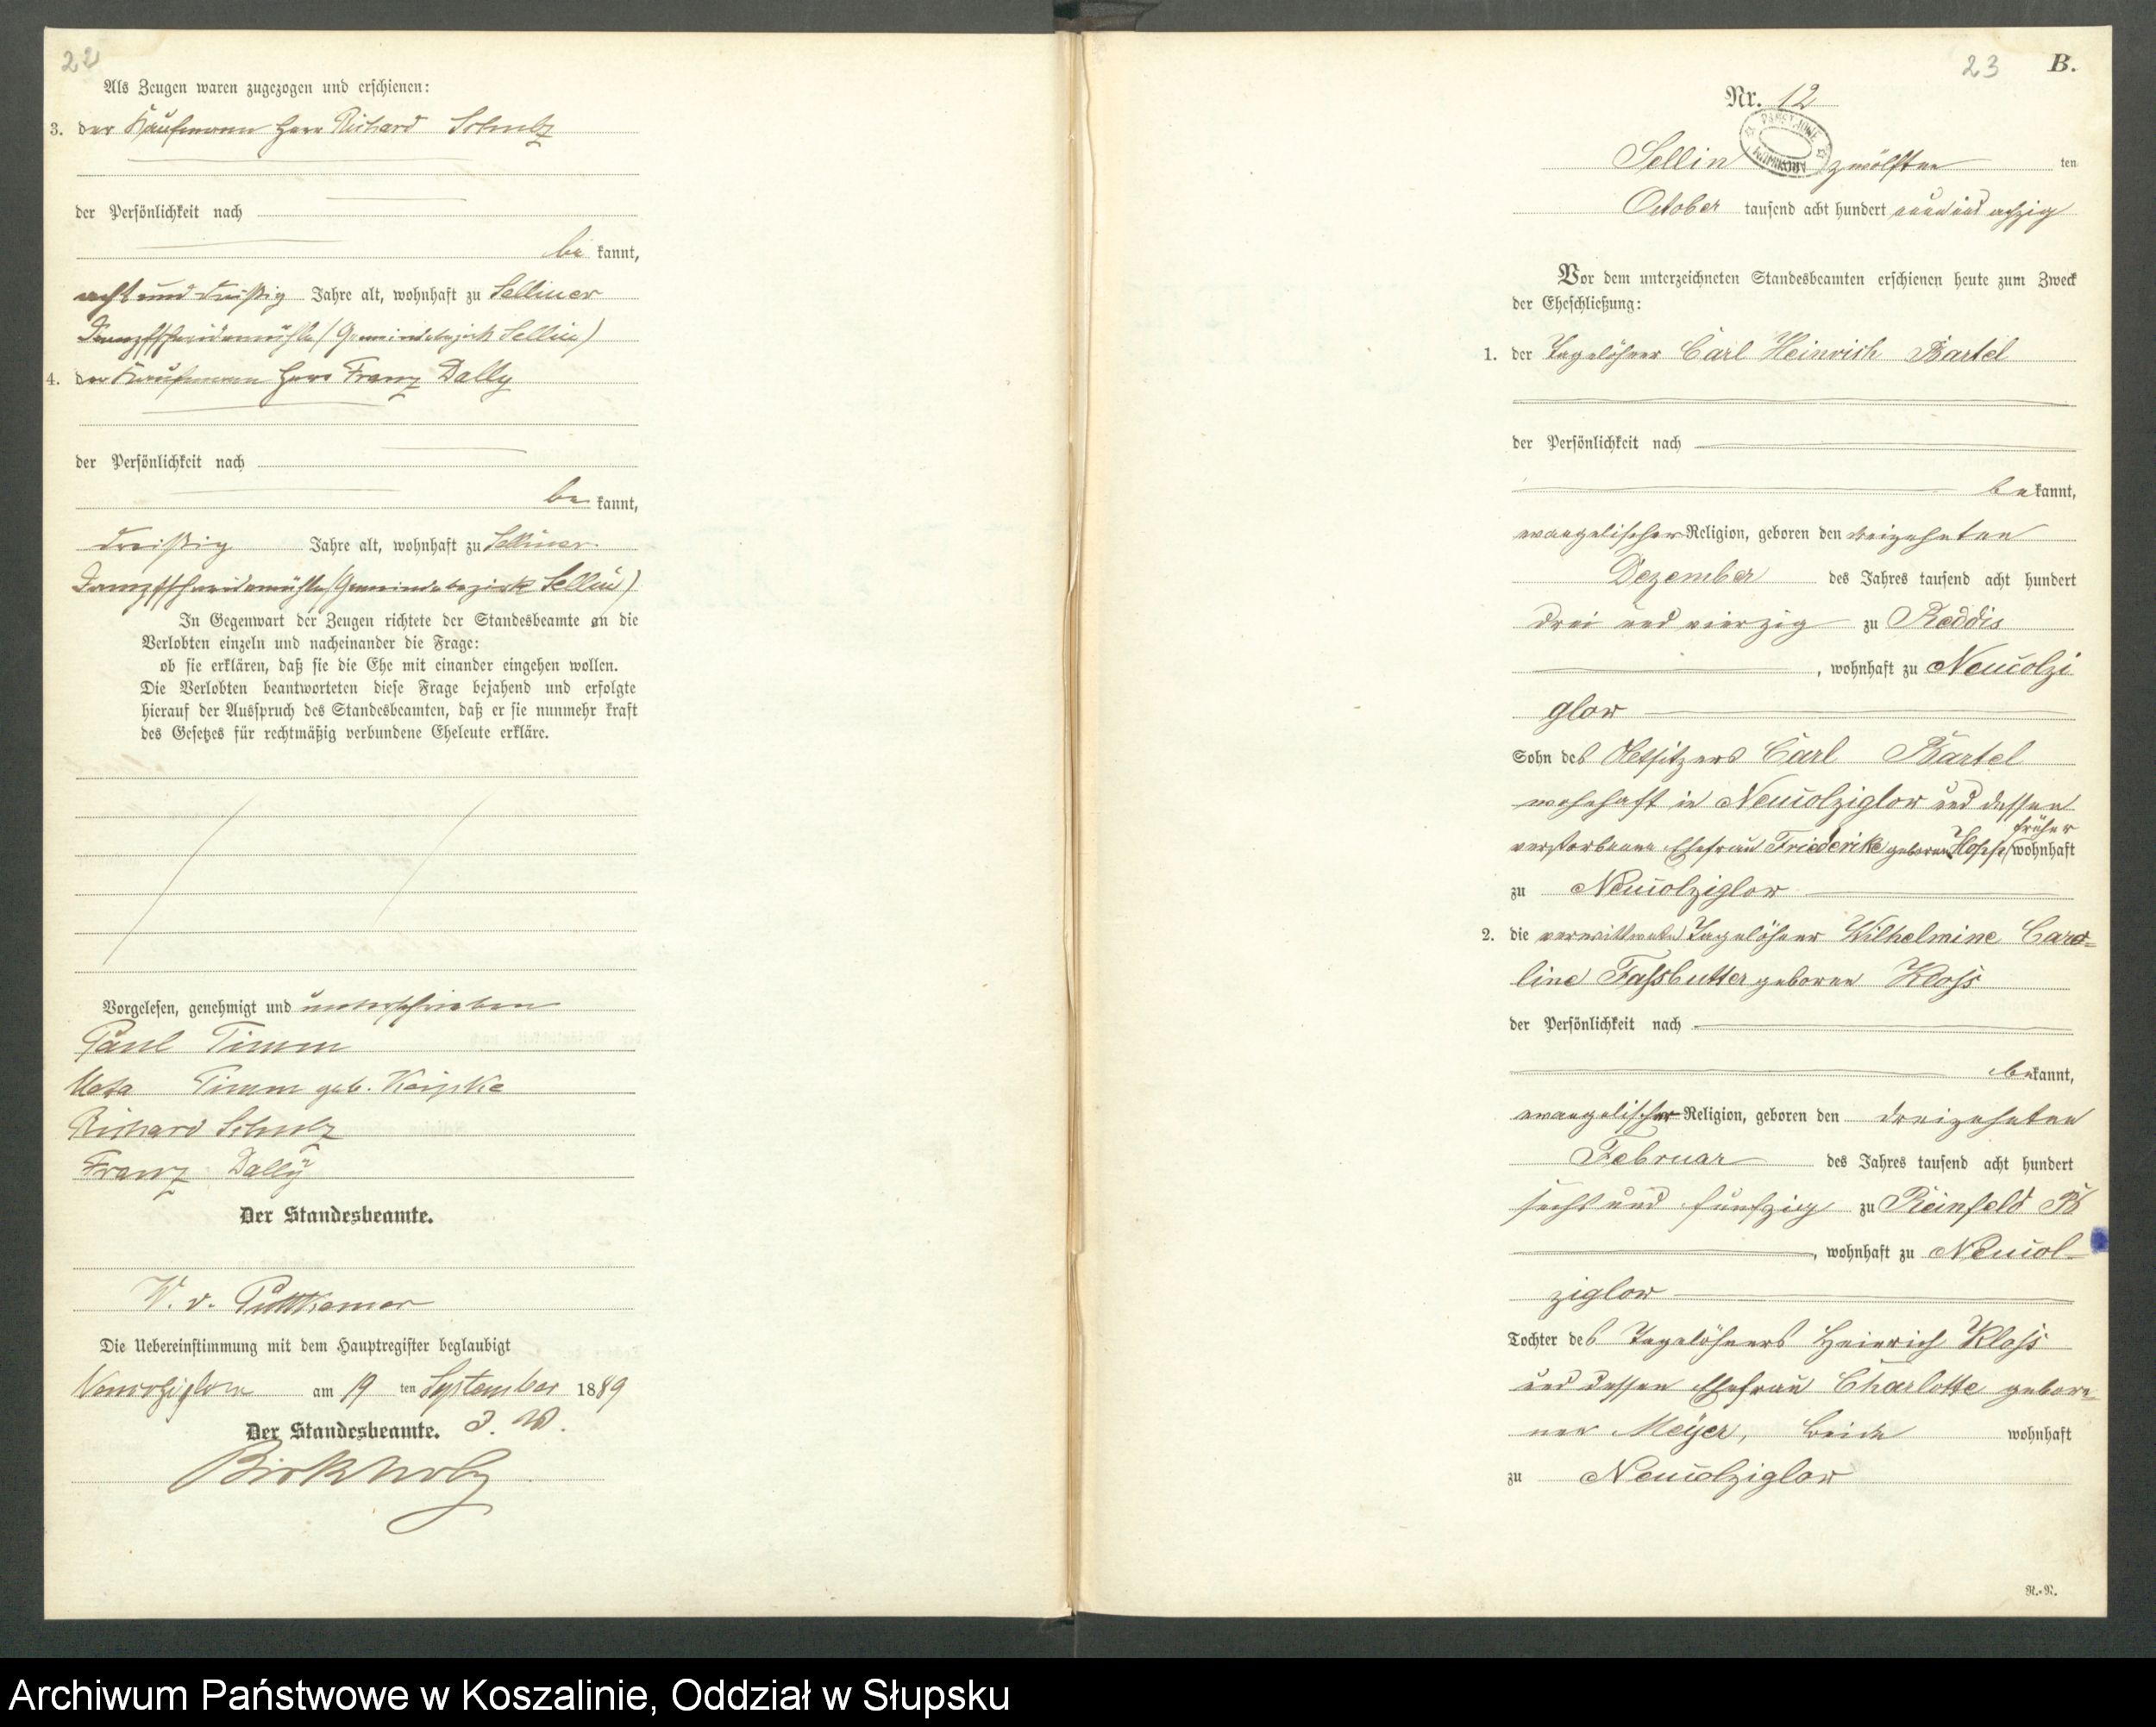 22
Als Zeugen waren zugezogen und erschienen:
3. der Kaufmann Herr Richard Schulz
der Persönlichkeit nach
be kannt,
acht und dreißig Jahre alt, wohnhaft zu Selliner
Dampfschneidemühle (Gemeindebezirk Sellin)
4. der Kaufmann Herr Franz Dally
der Persönlichkeit nach
be kannt,
dreißig Jahre alt, wohnhaft zu Selliner
Dampfschneidemühle (Gemeindebezirk Sellin)
In Gegenwart der Zeugen richtete der Standesbeamte an die
Verlobten einzeln und nacheinander die Frage:
ob sie erklären, daß sie die Ehe mit einander eingehen wollen.
Die Verlobten beantworteten diese Frage bejahend und erfolgte
hierauf der Ausspruch des Standesbeamten, daß er sie nunmehr kraft
des Gesetzes für rechtmäßig verbundene Eheleute erkläre.
Vorgelesen, genehmigt und unterschrieben
Paul Timm
Timm geb.
Richard Schulz
Franz Dally
Der Standesbeamte.
W. v. Puttkamer
Die Uebereinstimmung mit dem Hauptregister beglaubigt
am 19 ten September 1889
Der Standesbeamte. J. V.
Birkholz
23 B.
Nr. 12
Sellin zwölften ten
October tausend acht hundert neun und achzig
Vor dem unterzeichneten Standesbeamten erschienen heute zum Zweck
der Eheschließung:
1. der Tagelöhner Carl Heinrich Bartel
der Persönlichkeit nach
be kannt,
evangelischer Religion, geboren den dreizehnten
Dezember des Jahres tausend acht hundert
drei und vierzig zu Reddis
, wohnhaft zu Neucolzi
glow
Sohn des Carl Bartel
wohnhaft in Neucolziglow und dessen
früher
verstorbenen Ehefrau Friederike geborene wohnhaft
zu Neucolziglow
2. die verwittwete Tagelöhner Wilhelmine Caro-
line Fassbutter geborene Kloss
der Persönlichkeit nach
be kannt,
evangelischer Religion, geboren den dreizehnten
Februar des Jahres tausend acht hundert
sechs und fünfzig zu Reinfeld
, wohnhaft zu Neucol-
ziglow
Tochter des Tagelöhners Heinrich Kloss
und dessen Ehefrau Charlotte gebore-
nen Meyer, beide wohnhaft
zu Neucolziglow
R.-N.
Archiwum Państwowe w Koszalinie, Oddział w Słupsku